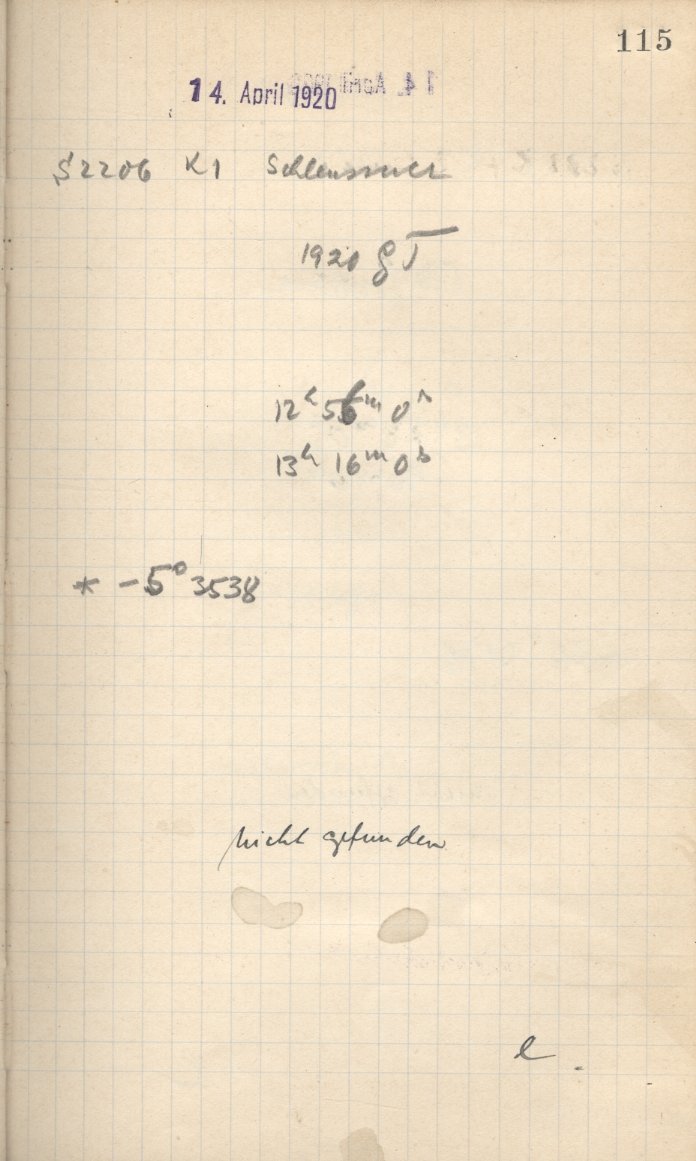 115
14. April 1920
S2206 K1 Schleussner
1920
12h 56m 0s
13h 16m 0s
* -5° 3538
nicht gefunden